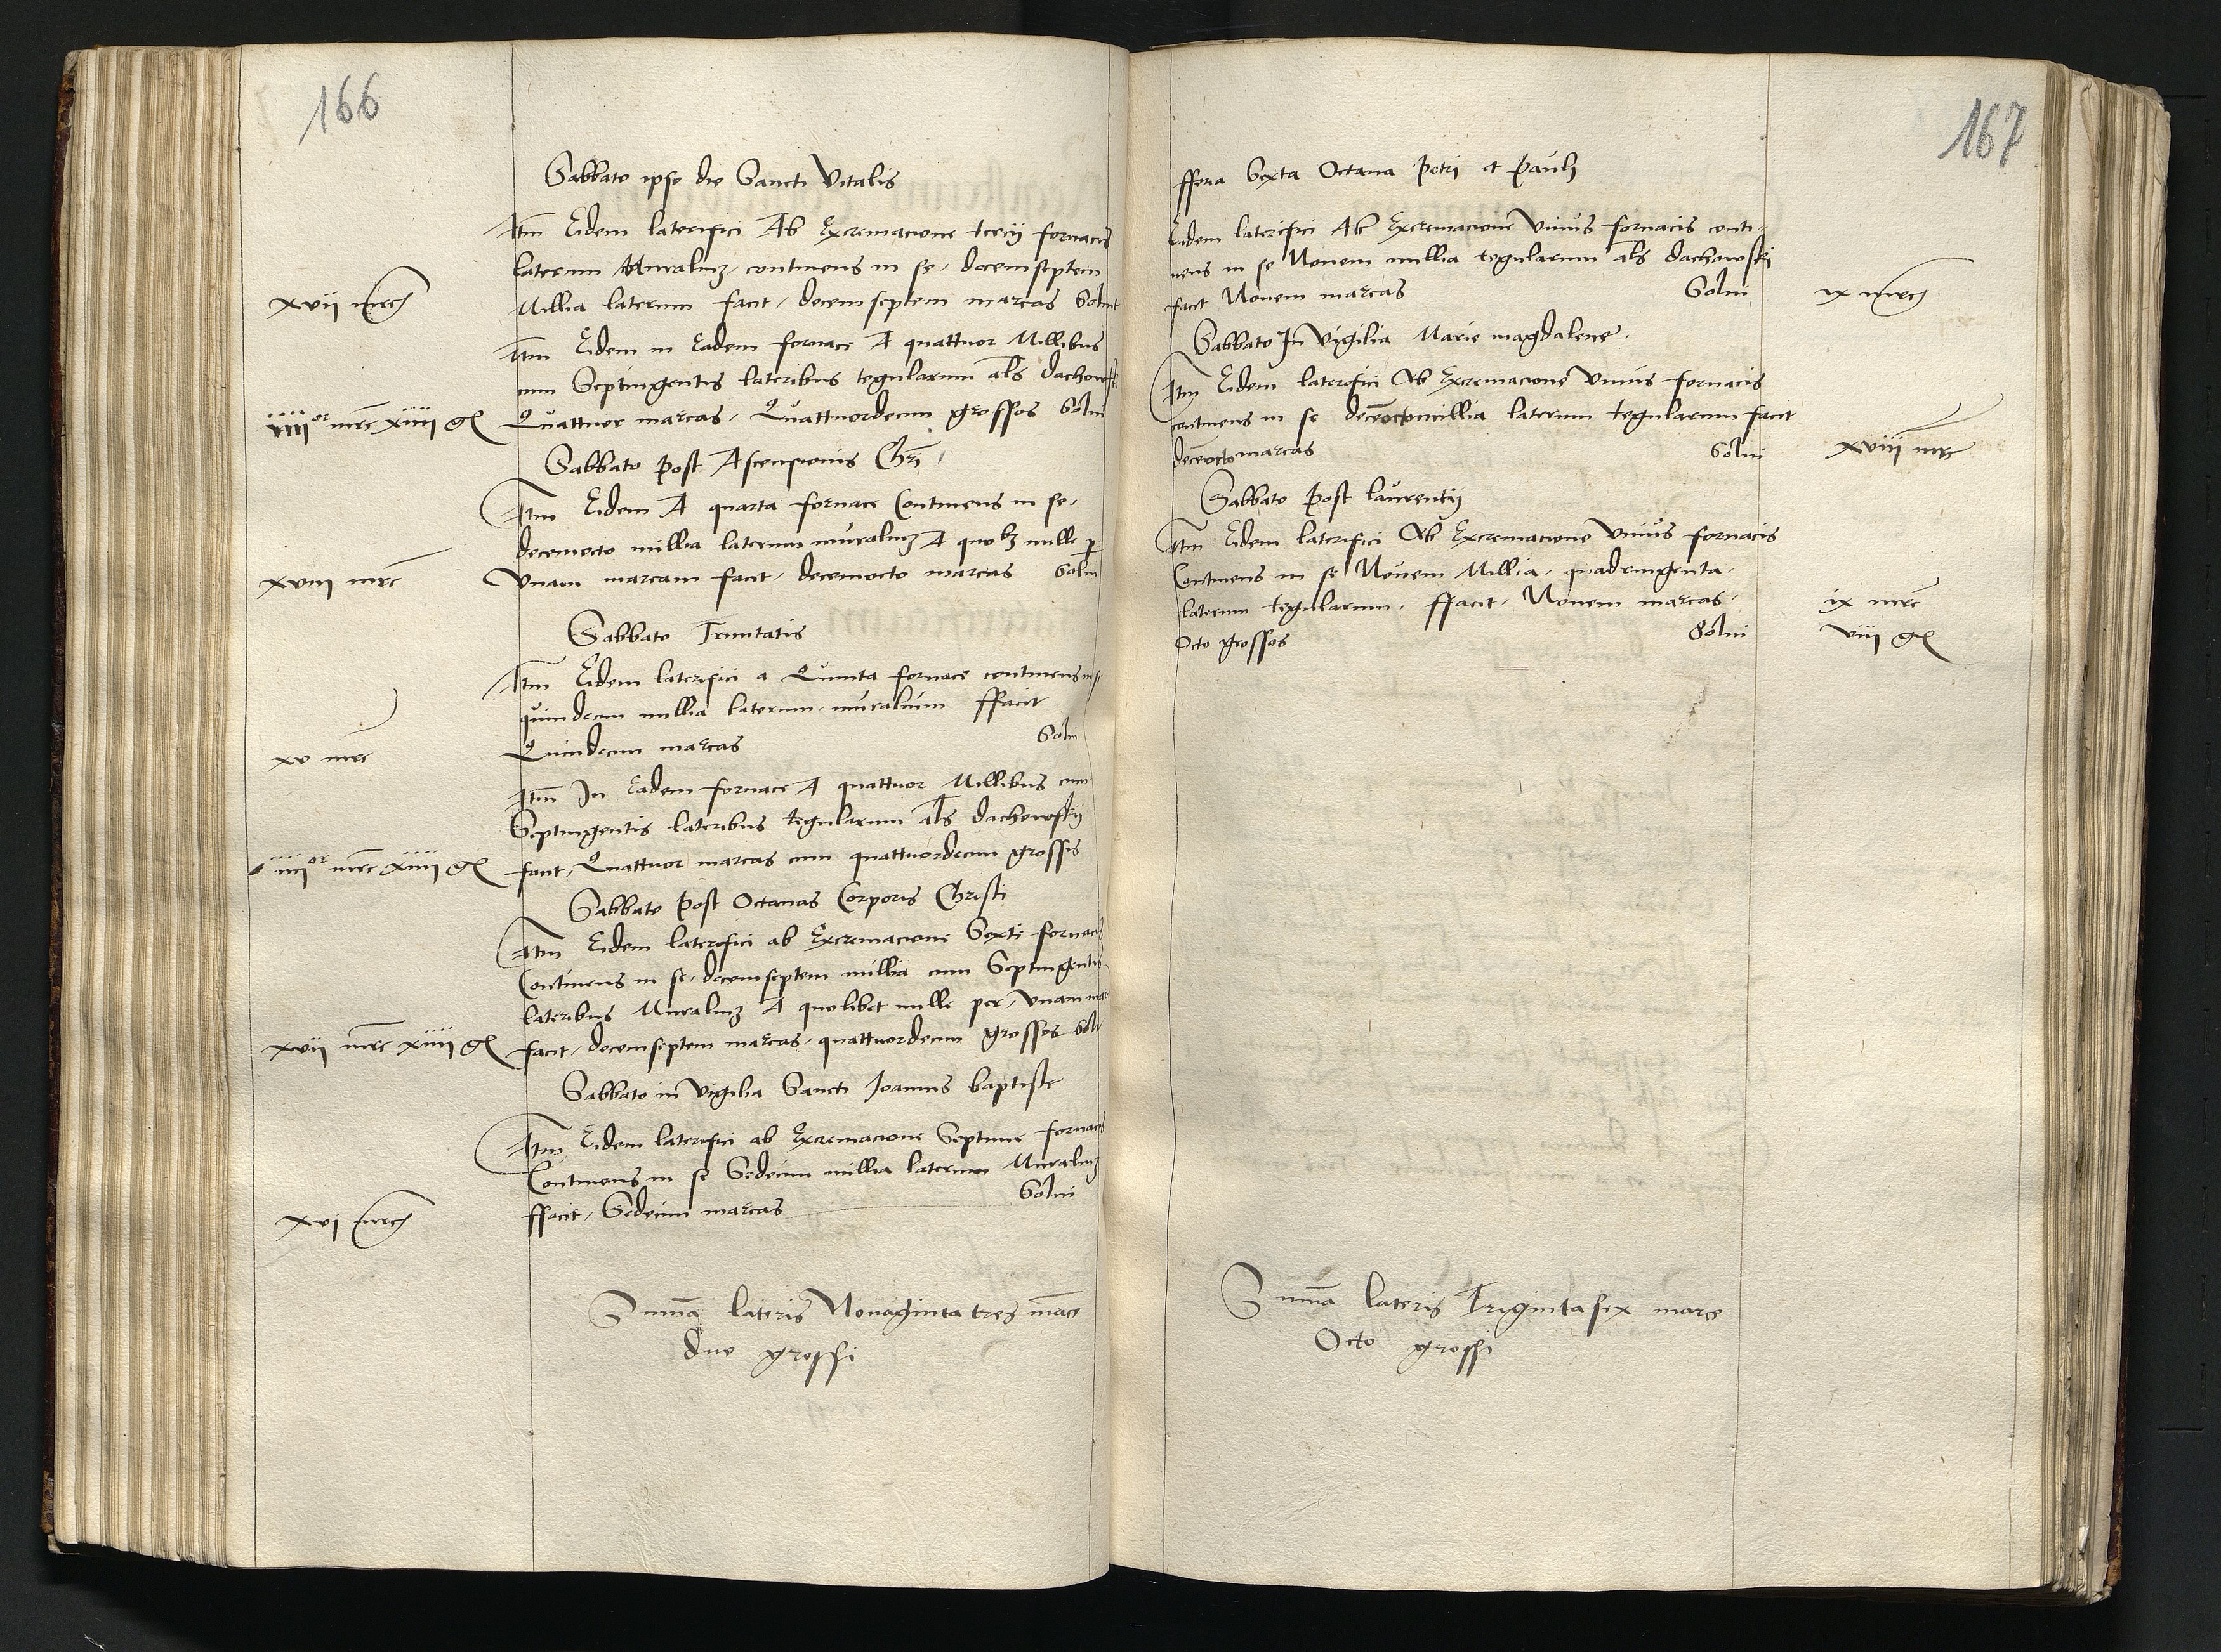 166
Sabbato ipso die Sancti Vitalis
Itm Eidem laterifici Ab Excremacione tercij fornacis
laterum Muraliuz, continens in se, decemseptem
xvii mrc Millia laterum facit, decemseptem marcas Solui
Itm Eidem in Eadem fornace A quattuor Millibus
cum Septingentis lateribus tegularum als dachowski
iiii or mrc xiiii gr Quattuor marcas, Quattuordecim grossos Solui
Sabbato post Ascensionis Chri
Itm Eidem A quarta fornace Continens in se,
decemocto millia laterum muraliuz A quolibz mille p
xviii mrc Vnam marcam facit, decemocto marcas Solui
Sabbato Trinitatis
Itm Eidem laterifici a Quinta fornace continens in se
quindecim millia laterum, muralium ffacit
xv mrc Quindecim marcas Solui
Itm In Eadem fornace A quattuor Millibus cum
Septingentis lateribus tegularum als dachowskij
iiii or mrc xiiii gr facit, Quattuor marcas cum quattuordecim grossis
Sabbato post Octauas Corporis Christi
Itm Eidem laterifici ab Excremacione Sexti fornacis
Continens in se, decemseptem millia cum Septingentis
lateribus Muraliuz A quolibet mille per, Vnam mar
xvii mrc xiiii gr facit, decemseptem marcas, quattuordecim grossos Solui
Sabbato in Vigilia Sancti Joannis baptiste
Itm Eidem laterifici ab Excremacione Septime fornacis
Continens in se Sedecim millia laterum Muraliuz
xvi mrc ffacit, Sedecim marcas Solui
Summa lateris Nonaginta tres marce
duo grossi
167
fferia Sexta Octaua Petri et Pauli
Eidem laterifici Ab Excremacione Vnius fornacis conti
nens in se Nouem millia tegularum als dachowski
facit Nouem marcas Solui ix mrc
Sabbato In Vigilia Marie magdalene.
Itm Eidem laterifici Ab Excremacione Vnius fornacis
continens in se deceoctomillia laterum tegularum facit
deceocto marcas Solui xviii mrc
Sabbato post laurentij
Itm Eidem laterifici Ab Excremacione Vnius fornacis
Continens in se Nouem Millia, quadringenta,
laterum tegularum, ffacit, Nouem marcas, ix mrc
Octo grossos Solui viii gr
Summa lateris Trigintasex marce
Octo grossi